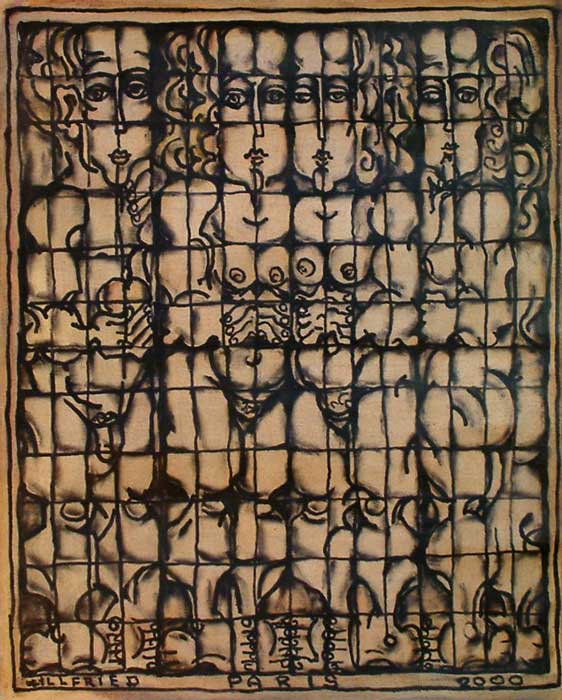 WILLFRIED PARIS 2000